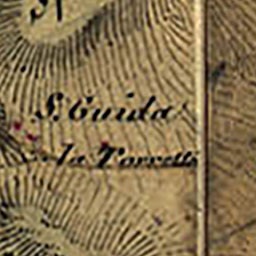 S. Guida
la Torrette